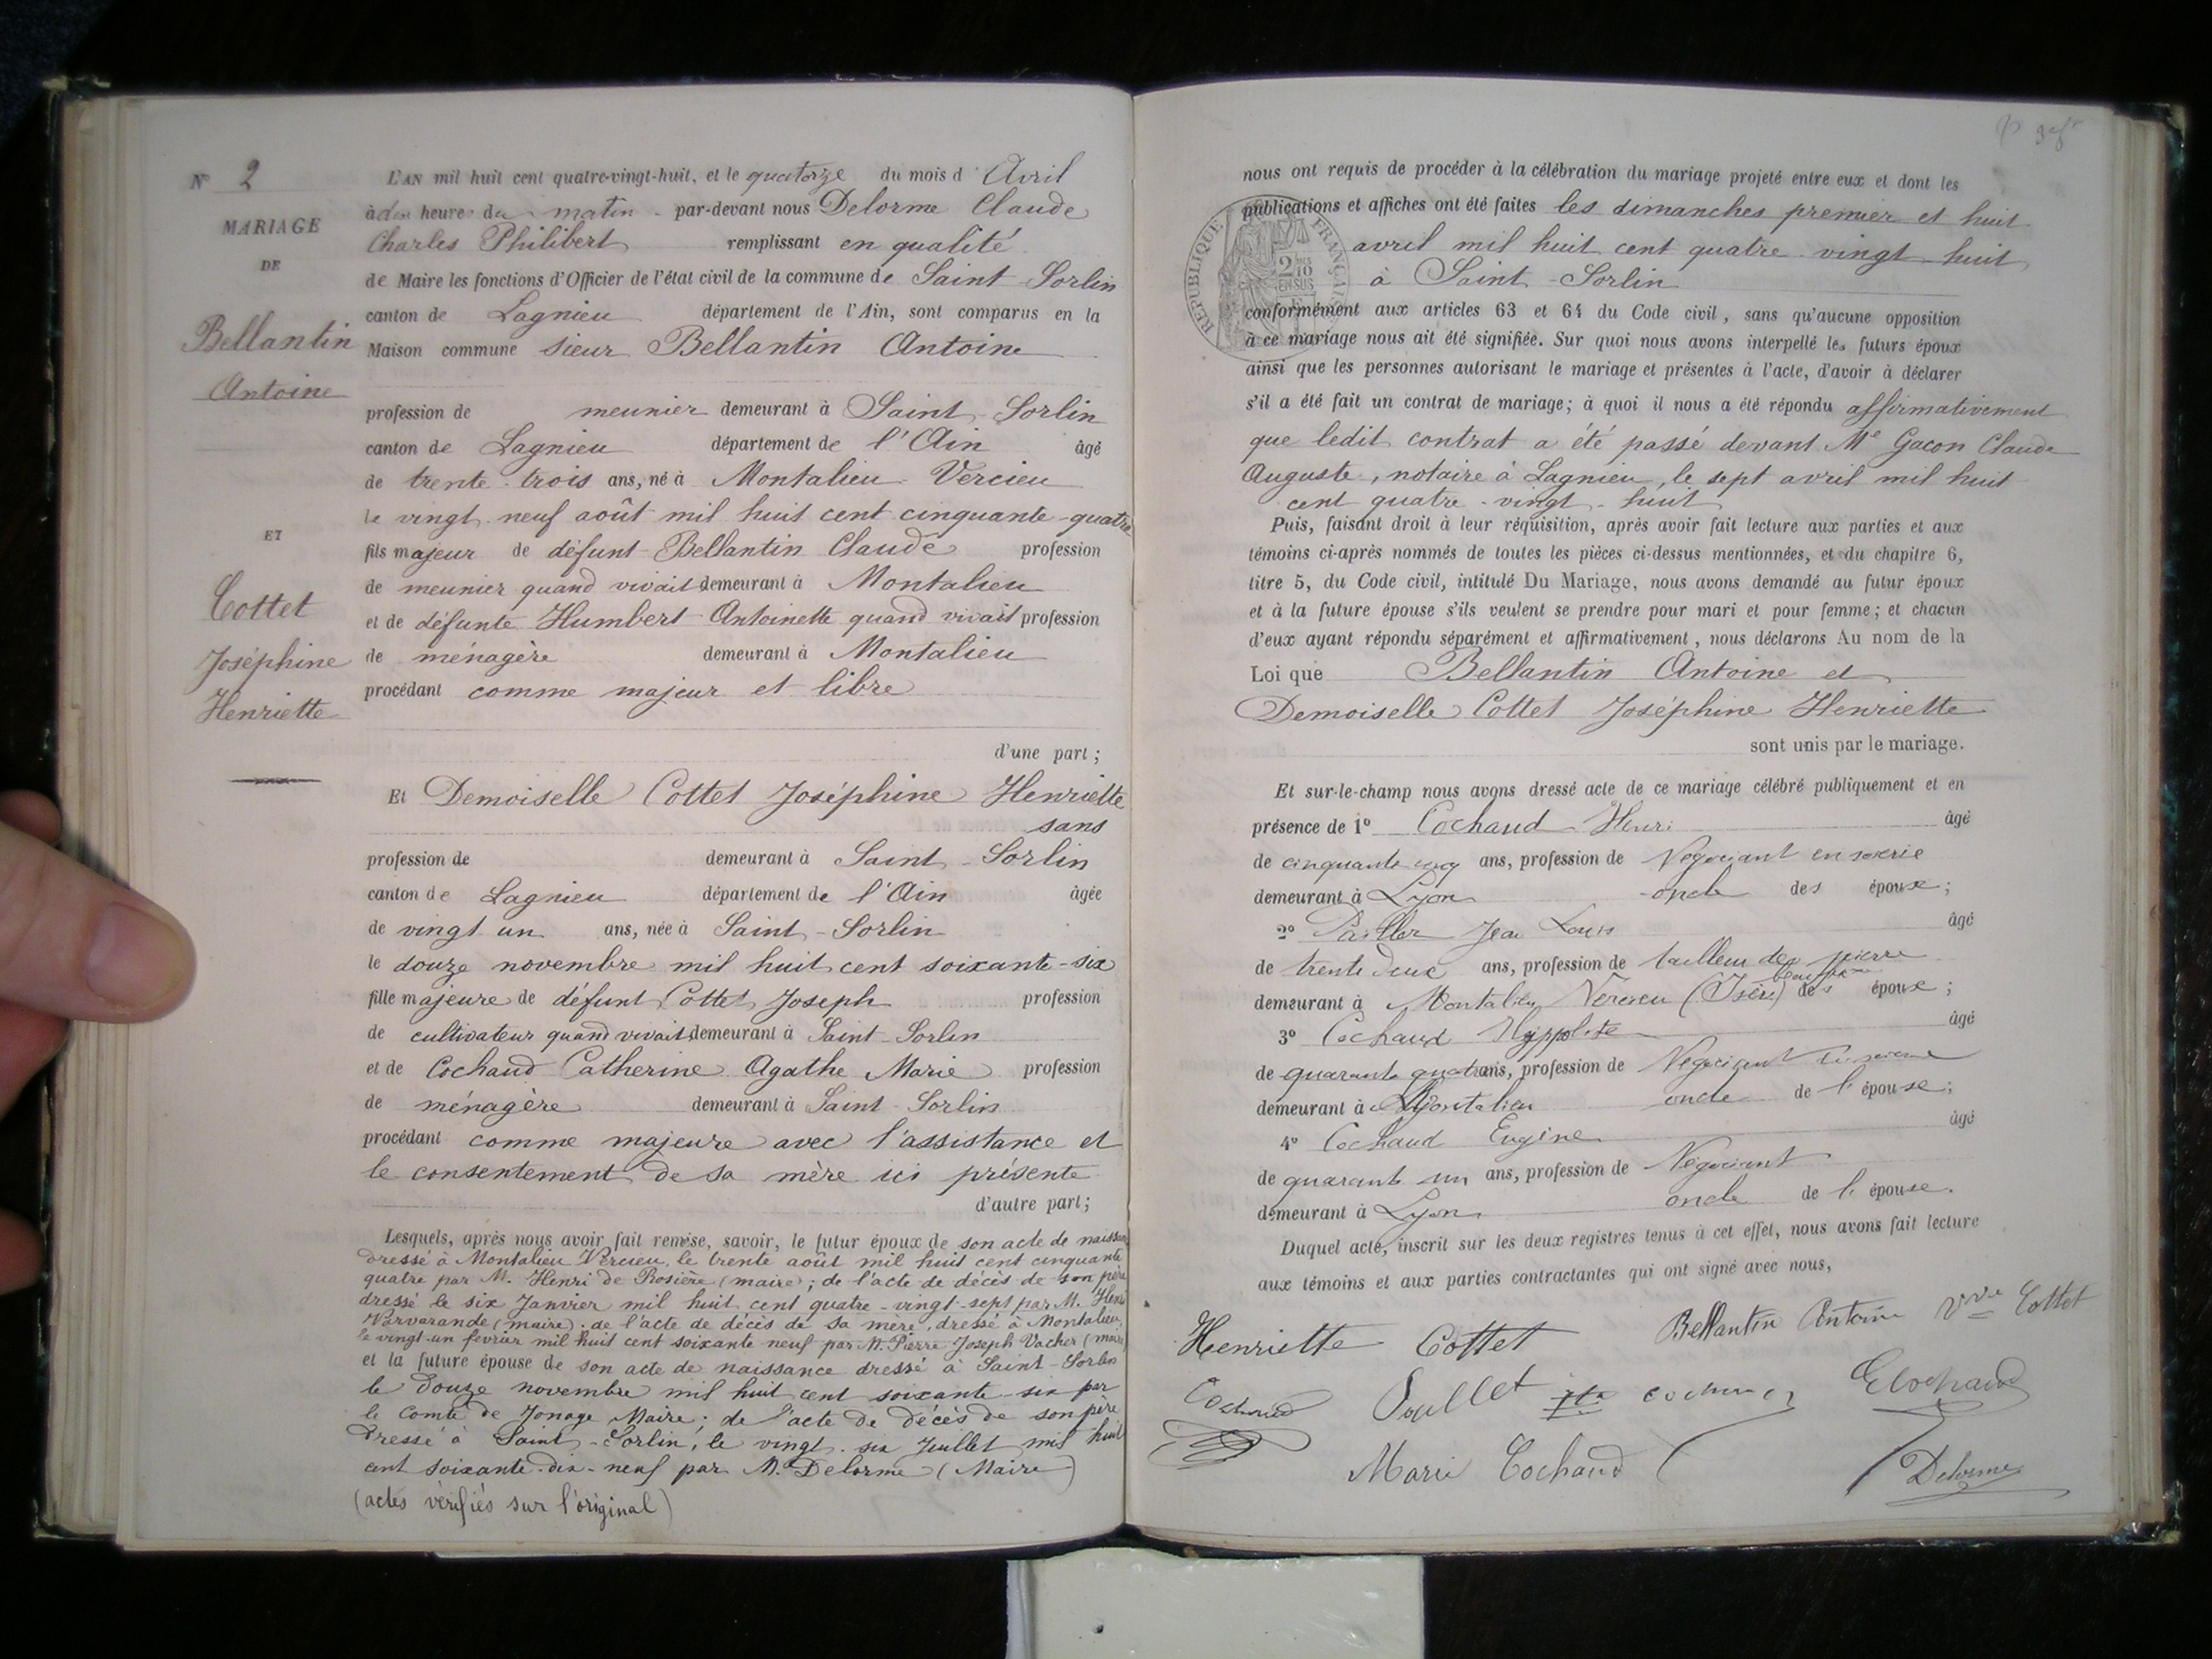 N° 2
MARIAGE
DE
Bellantin
Antoine
ET
Cottet
Joséphine
Henriette
L'AN mil huit cent quatre-vingt-huit, et le quatorze du mois d'Avril
à dix heures du matin par-devant nous Delorme Claude
Charles Philibert remplissant en qualité
de Maire les fonctions d'Officier de l'état civil de la commune de Saint-Sorlin
canton de Lagnieu département de l'Ain, sont comparus en la
Maison commune sieur Bellantin Antoine
profession de meunier demeurant à Saint-Sorlin
canton de Lagnieu département de l'Ain âgé
de trente-trois ans, né à Montalieu-Vercieu
le vingt-neuf août mil huit cent cinquante-quatre
fils majeur de défunt Bellantin Claude profession
de meunier quand vivait demeurant à Montalieu
et de défunte Humbert Antoinette quand vivait profession
de ménagère demeurant à Montalieu
procédant comme majeur et libre
d'une part;
Et Demoiselle Cottet Joséphine Henriette
sans
profession de demeurant à Saint-Sorlin
canton de Lagnieu département de l'Ain âgée
de vingt un ans, née à Saint-Sorlin
le douze novembre mil huit cent soixante-six
fille majeure de défunt Cottet Joseph profession
de cultivateur quand vivait demeurant à Saint-Sorlin
et de Cochaud Catherine Agathe Marie profession
de ménagère demeurant à Saint-Sorlin
procédant comme majeure avec l'assistance et
le consentement de sa mère ici présente
d'autre part;
Lesquels, après nous avoir fait remise, savoir, le futur époux de son acte de naissance
dressé à Montalieu Vercieu, le trente août mil huit cent cinquante
quatre par M. Henri de Rosière (maire); de l'acte de décès de son père
dressé le six Janvier mil huit cent quatre-vingt-sept par M. Henri
Varvarande (maire); de l'acte de décès de sa mère, dressé à Montalieu,
le vingt-un fevrier mil huit cent soixante neuf par M. Pierre Joseph Vacher (maire)
et la future épouse de son acte de naissance dressé à Saint-Sorlin
le douze novembre mil huit cent soixante-six par
le Comte de Jonage Maire; de l'acte de décès de son père
dressé à Saint-Sorlin, le vingt-six Juillet mil huit
cent soixante-dix-neuf par M. Delorme (Maire)
(actes vérifiés sur l'original)
nous ont requis de procéder à la célébration du mariage projeté entre eux et dont les
publications et affiches ont été faites les dimanches premier et huit
avril mil huit cent quatre-vingt-huit
à Saint-Sorlin
conformément aux articles 63 et 64 du Code civil, sans qu'aucune opposition
à ce mariage nous ait été signifiée. Sur quoi nous avons interpellé les futurs époux
ainsi que les personnes autorisant le mariage et présentes à l'acte, d'avoir à déclarer
s'il a été fait un contrat de mariage; à quoi il nous a été répondu affirmativement
que ledit contrat a été passé devant Me Gacon Claude
Auguste, notaire à Lagnieu, le sept avril mil huit
cent quatre-vingt-huit
Puis, faisant droit à leur réquisition, après avoir fait lecture aux parties et aux
témoins ci-après nommés de toutes les pièces ci-dessus mentionnées, et du chapitre 6,
titre 5, du Code civil, intitulé Du Mariage, nous avons demandé au futur époux
et à la future épouse s'ils veulent se prendre pour mari et pour femme; et chacun
d'eux ayant répondu séparément et affirmativement, nous déclarons Au nom de la
Loi que Bellantin Antoine et
Demoiselle Cottet Joséphine Henriette
sont unis par le mariage.
Et sur-le-champ nous avons dressé acte de ce mariage célébré publiquement et en
présence de 1° Cochaud Henri âgé
de cinquante cinq ans, profession de Négociant en soierie
demeurant à Lyon oncle des épouse;
2° Jean Louis âgé
de trente deux ans, profession de tailleur de pierre
demeurant à Montalieu Vercieu (Isère) beau frère des épouse;
3° Cochaud Hyppolite âgé
de quarante quatre ans, profession de Négociant en soierie
demeurant à Montalieu oncle de l'épouse;
4° Cochaud Eugène âgé
de quarante un ans, profession de Négociant
demeurant à Lyon oncle de l'épouse.
Duquel acte, inscrit sur les deux registres tenus à cet effet, nous avons fait lecture
aux témoins et aux parties contractantes qui ont signé avec nous,
Henriette Cottet Bellantin Antoine Vve Cottet
Cochaud
E Cochaud
Marie Cochaud Delorme
RÉPUBLIQUE FRANÇAISE